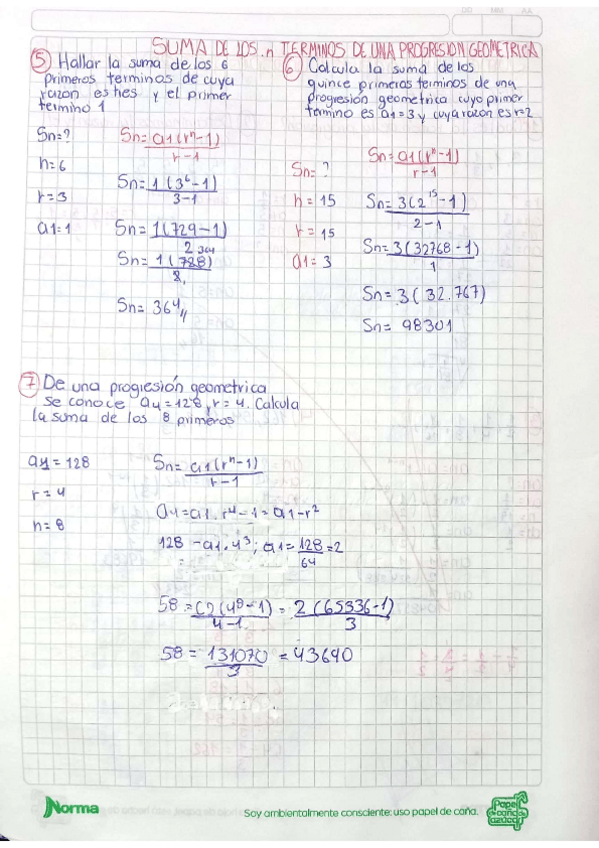 SUMA DE LOS n TERMINOS DE UNA PROGRESION GEOMETRICA
5 Hallar la suma de los 6
primeros terminos de cuya
razon es tres y el primer
termino 1
Sn=? Sn=a1(rⁿ-1)
r-1
n=6 Sn=1(3⁶-1)
3-1
r=3
a1=1 Sn=1(729-1)
2
Sn=1(728)
Sn= 364
6 Calcula la suma de los
quince primeros terminos de una
progresión geometrica cuyo primer
termino es a1=3 y cuya razon es r=2
Sn=? Sn=a1(rⁿ-1)
r-1
n=15 Sn=3(2¹⁵-1)
2-1
r=15
Sn=3(32768-1)
1
a1=3
Sn=3(32.767)
Sn= 98301
7 De una progresión geometrica
se conoce a4=128, r=4. Calcula
la suma de los 8 primeros
a4=128 Sn=a1(rⁿ-1)
r-1
r=4
a4=a1.r⁴-1=a1-r²
n=8
128-a1.4³; a1=128=2
64
58=(2(4⁸-1)=2(65336-1)
4-1 3
58=131070=43690
3
Norma
Soy ambientalmente consciente: uso papel de caña.
Papel
de caña de
azúcar